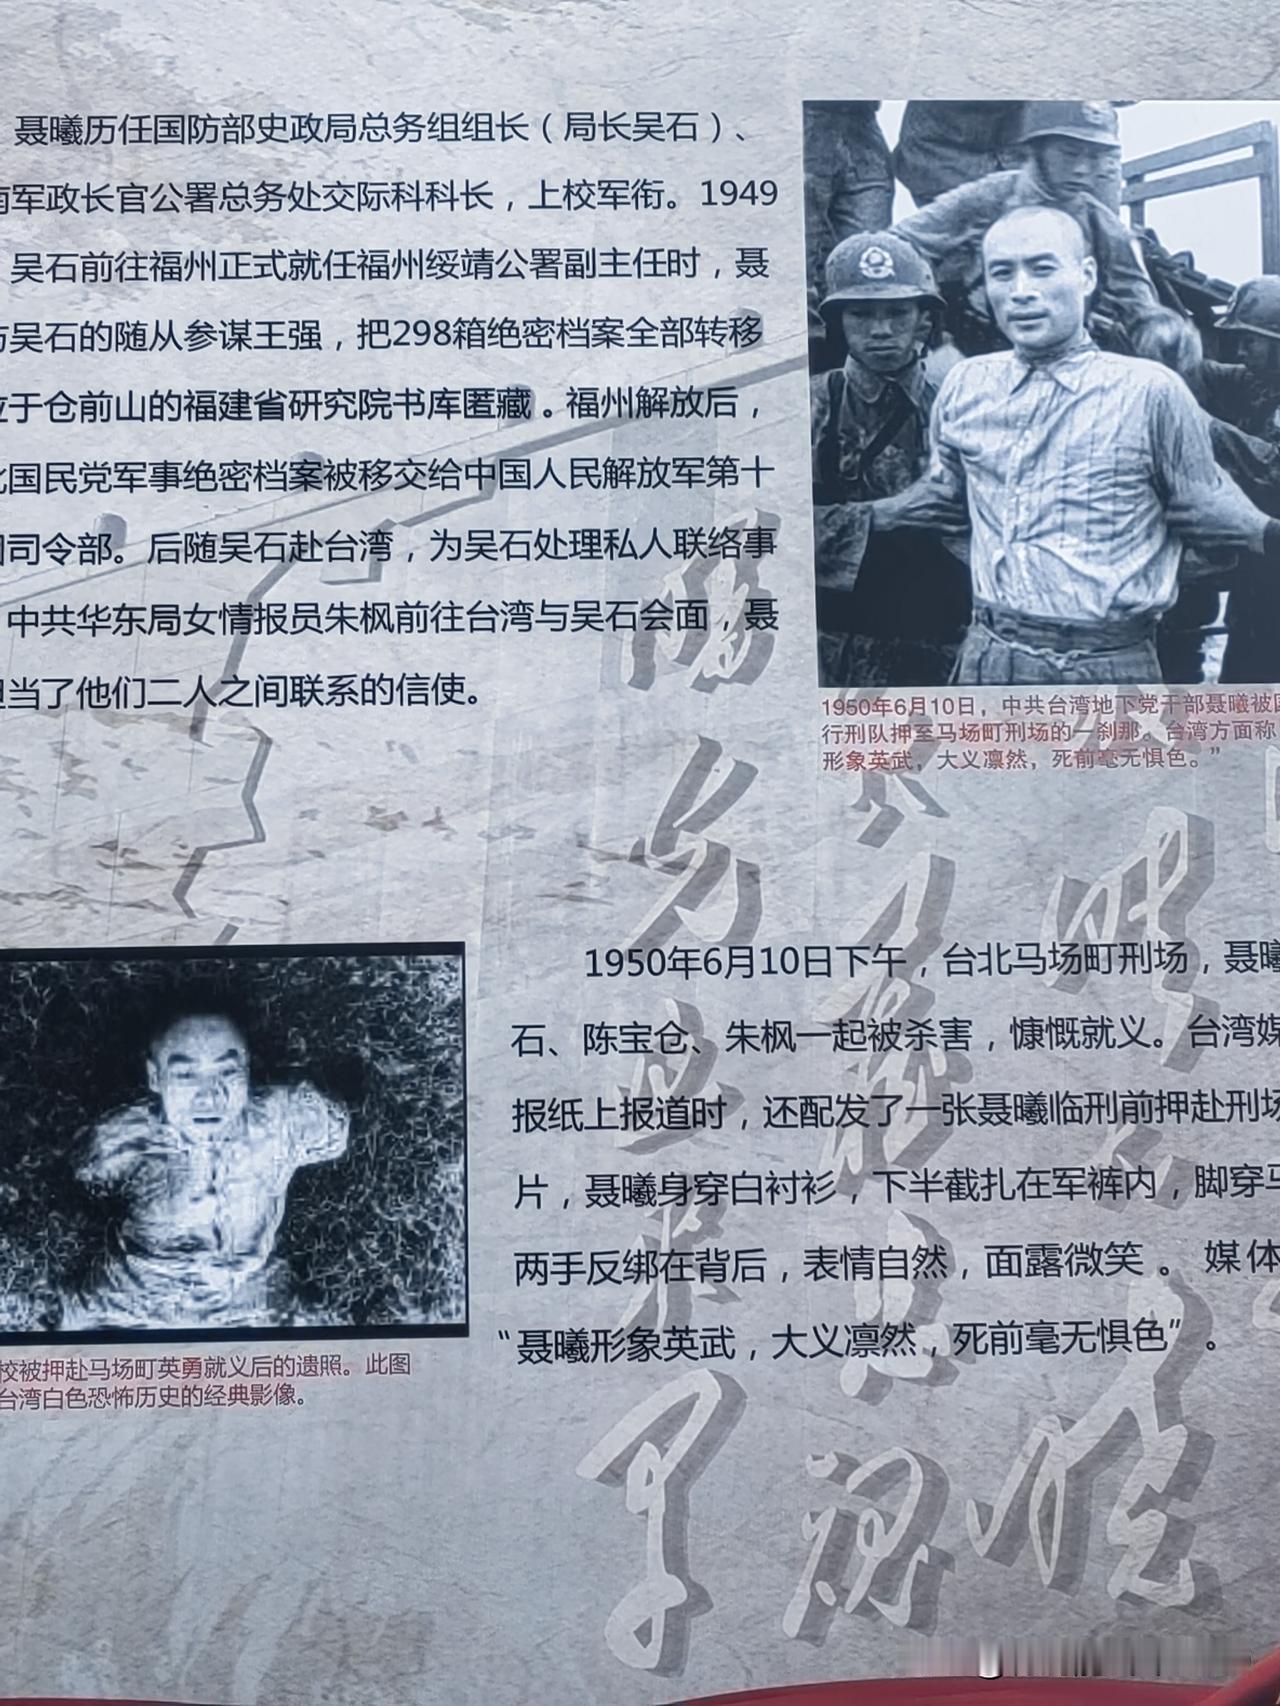 聂曦历任国防部史政局总务组组长（局长吴石）、
南军政长官公署总务处交际科科长，上校军衔。1949
吴石前往福州正式就任福州绥靖公署副主任时，聂
吴石的随从参谋王强，把298箱绝密档案全部转移
位于仓前山的福建省研究院书库匿藏。福州解放后，
国民党军事绝密档案被移交给中国人民解放军第十
司令部。后随吴石赴台湾，为吴石处理私人联络事
中共华东局女情报员朱枫前往台湾与吴石会面，聂
担当了他们二人之间联系的信使。
1950年6月10日，中共台湾地下党干部聂曦被国
行刑队押至马场町刑场的一刹那。台湾方面称
形象英武，大义凛然，死前毫无惧色。”
1950年6月10日下午，台北马场町刑场，聂曦
石、陈宝仓、朱枫一起被杀害，慷慨就义。台湾媒
报纸上报道时，还配发了一张聂曦临刑前押赴刑场
片，聂曦身穿白衬衫，下半截扎在军裤内，脚穿马
两手反绑在背后，表情自然，面露微笑。媒体
“聂曦形象英武，大义凛然，死前毫无惧色”。
校被押赴马场町英勇就义后的遗照。此图
台湾白色恐怖历史的经典影像。